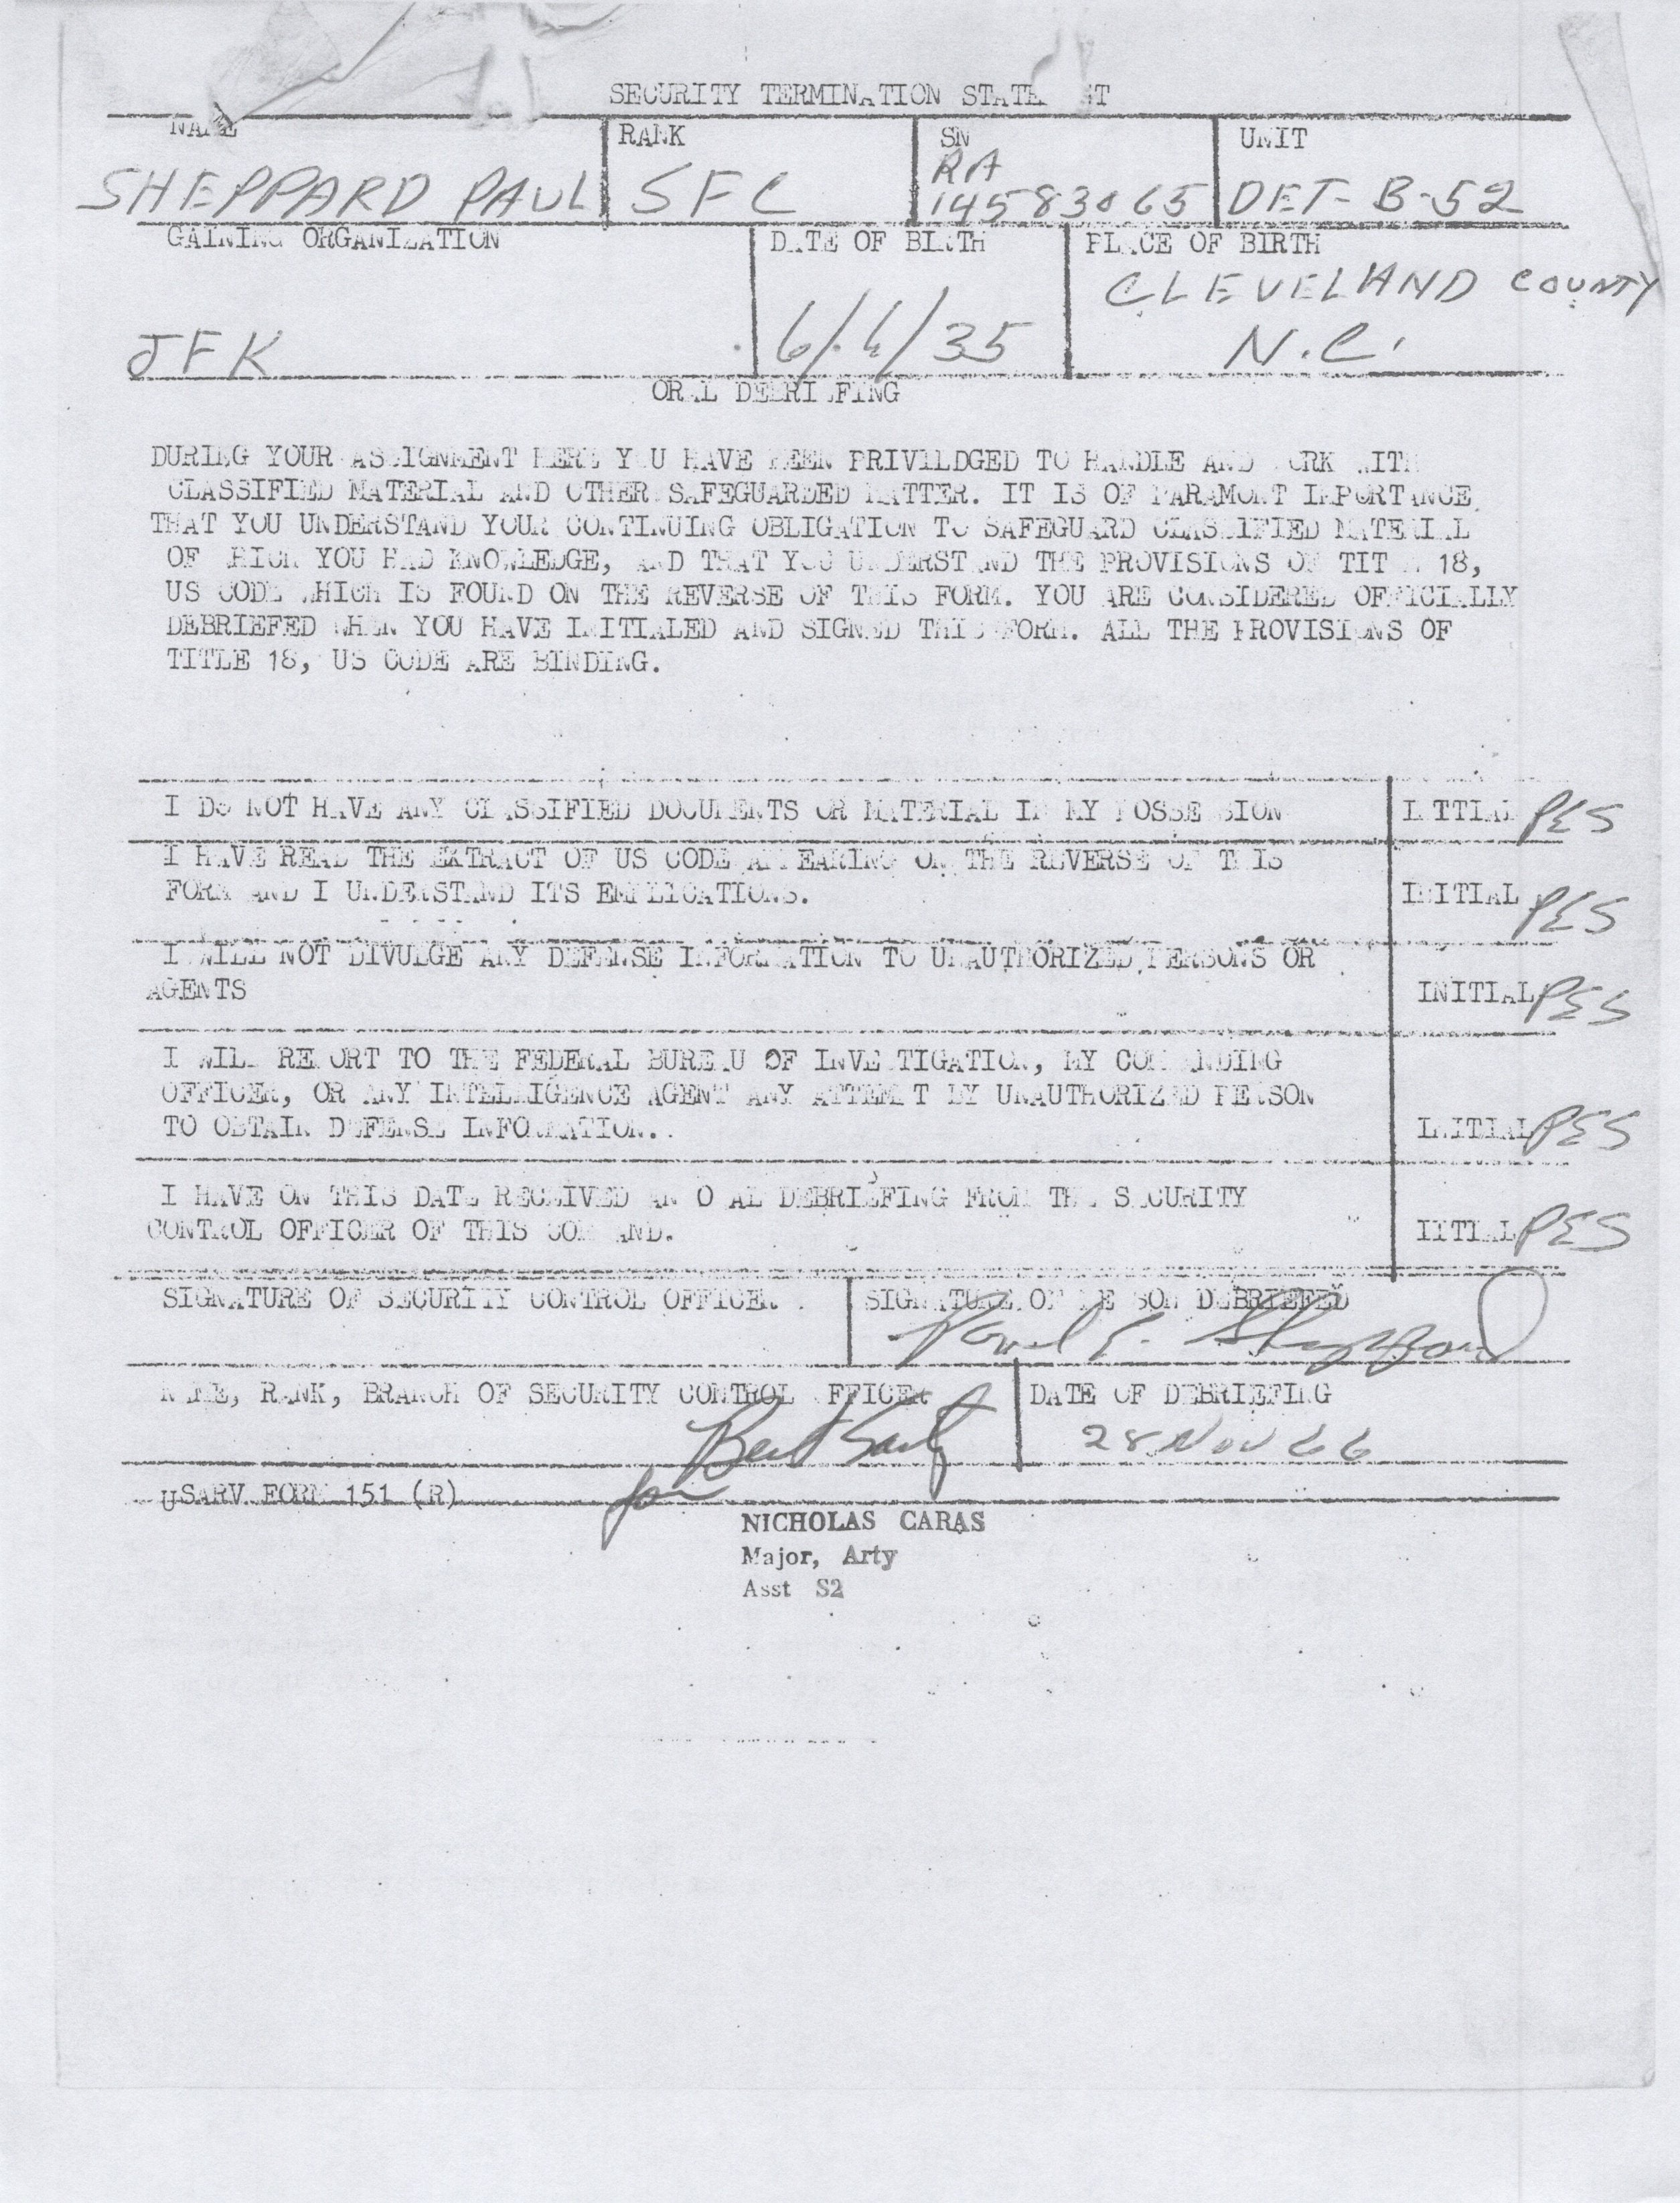 SECURITY TERMINATION STATEMENT
NAME RANK SN UNIT
SHEPPARD PAUL SFC RA 14583065 DET- B-52
GAINING ORGANIZATION DATE OF BIRTH PLACE OF BIRTH
JFK 6/6/35 CLEVELAND COUNTY
N.C.
ORAL DEBRIEFING
DURING YOUR ASSIGNMENT HERE YOU HAVE BEEN PRIVILDGED TO HANDLE AND WORK WITH
CLASSIFIED MATERIAL AND OTHER SAFEGUARDED MATTER. IT IS OF PARAMONT IMPORTANCE
THAT YOU UNDERSTAND YOUR CONTINUING OBLIGATION TO SAFEGUARD CLASSIFIED MATERIAL
OF WHICH YOU HAD KNOWLEDGE, AND THAT YOU UNDERSTAND THE PROVISIONS OF TITLE 18,
US CODE WHICH IS FOUND ON THE REVERSE OF THIS FORM. YOU ARE CONSIDERED OFFICIALLY
DEBRIEFED WHEN YOU HAVE INITIALED AND SIGNED THIS FORM. ALL THE PROVISIONS OF
TITLE 18, US CODE ARE BINDING.
I DO NOT HAVE ANY CLASSIFIED DOCUMENTS OR MATERIAL IN MY POSSESSION INITIAL PES
I HAVE READ THE EXTRACT OF US CODE APPEARING ON THE REVERSE OF THIS
FORM AND I UNDERSTAND ITS EMPLICATIONS. INITIAL PES
I WILL NOT DIVULGE ANY DEFENSE INFORMATION TO UNAUTHORIZED PERSONS OR
AGENTS INITIAL PES
I WILL REPORT TO THE FEDERAL BUREAU OF INVESTIGATION, MY COMMANDING
OFFICER, OR ANY INTELLIGENCE AGENT ANY ATTEMPT BY UNAUTHORIZED PERSON
TO OBTAIN DEFENSE INFORMATION. INITIAL PES
I HAVE ON THIS DATE RECEIVED AN ORAL DEBRIEFING FROM THE SECURITY
CONTROL OFFICER OF THIS COMMAND. INITIAL PES
SIGNATURE OF SECURITY CONTROL OFFICER SIGNATURE OF PERSON DEBRIEFED
Paul E. Sheppard
NAME, RANK, BRANCH OF SECURITY CONTROL OFFICER DATE OF DEBRIEFING
28 NOV 66
USARV FORM 151 (R) for
NICHOLAS CARAS
Major, Arty
Asst S2